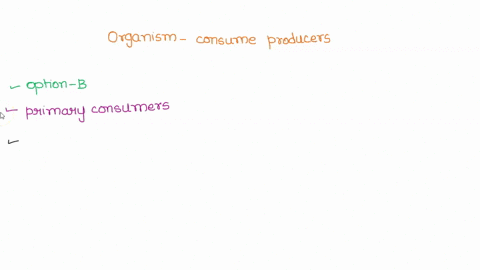 Organism - consume producers
✓ option-B
✓ primary consumers
✓